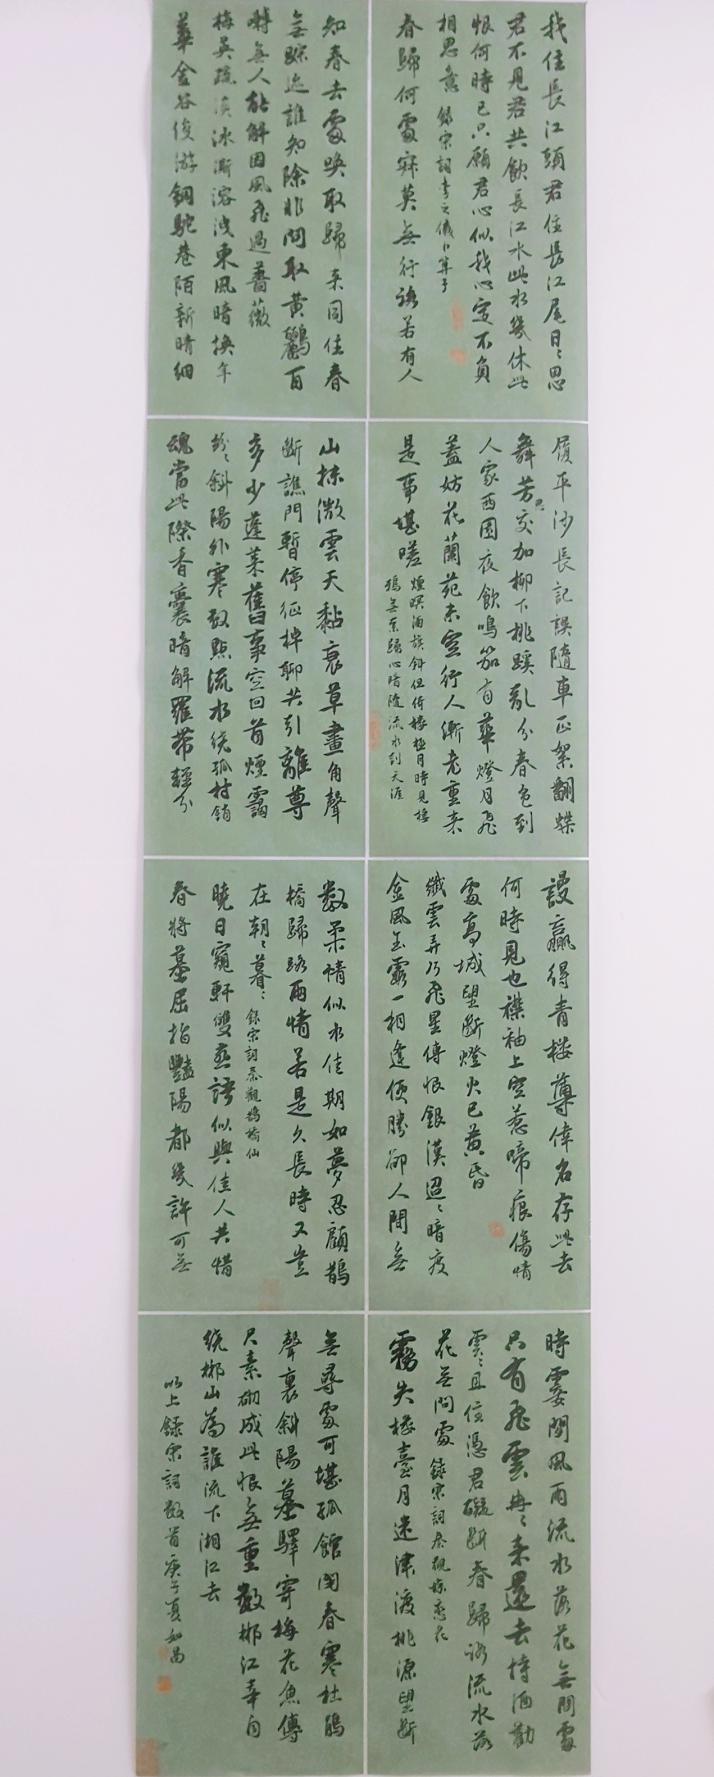 我住長江頭君住長江尾日〻思
君不見君共飲長江水此水幾休此
恨何時已只願君心似我心定不負
相思意 錄宋詞李之儀卜算子
春歸何處寂莫無行路若有人
知春去處喚取歸來同住春
無踪迹誰知除非問取黃鸝百
囀無人能解因風飛過薔薇
梅英疏淡冰澌溶洩東風暗換年
華金谷俊游銅駝巷陌新晴細
履平沙長記誤隨車正絮翻蝶
舞芳思交加柳下桃蹊亂分春色到
人家西園夜飲鳴笳有華燈月飛
蓋妨花蘭苑未空行人漸老重來
是事堪嗟 煙暝酒旗斜但倚樓極目時見棲
鴉無奈歸心暗隨流水到天涯
山抹微雲天黏衰草畫角聲
斷譙門暫停征棹聊共引離尊
多少蓬萊舊事空回首煙靄
紛〻斜陽外寒數點流水繞孤村銷
魂當此際香囊暗解羅帶輕分
謾贏得青樓薄倖名存此去
何時見也襟袖上空惹啼痕傷情
處高城望斷燈火已黃昏
纖雲弄巧飛星傳恨銀漢迢〻暗度
金風玉露一相逢便勝卻人間無
數柔情似水佳期如夢忍顧鵲
橋歸路兩情若是久長時又豈
在朝〻暮〻 錄宋詞秦觀鵲橋仙
曉日窺軒雙燕語似與佳人共惜
春將暮屈指豔陽都幾許可無
時霎閒風雨流水落花無問處
只有飛雲冉〻來還去持酒勸
雲〻且住憑君礙斷春歸路流水落
花無問處 錄宋詞秦觀蝶戀花
霧失樓臺月迷津渡桃源望斷
無尋處可堪孤館閉春寒杜鵑
聲裏斜陽暮驛寄梅花魚傳
尺素砌成此恨無重數郴江幸自
繞郴山為誰流下湘江去
以上錄宋詞數首庚子夏